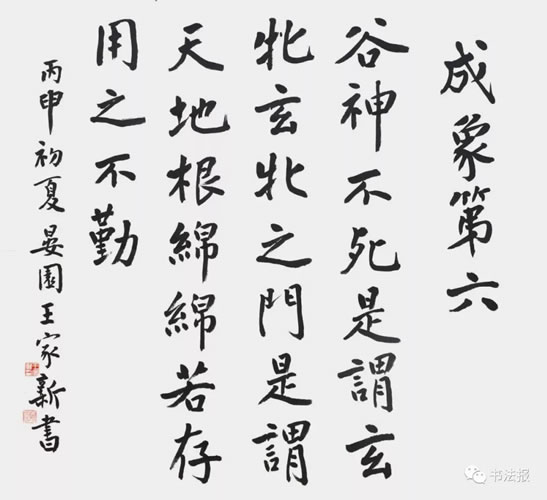 成象第六
谷神不死是謂玄
牝玄牝之門是謂
天地根綿綿若存
用之不勤
丙申初夏晏園王家新書
书法报